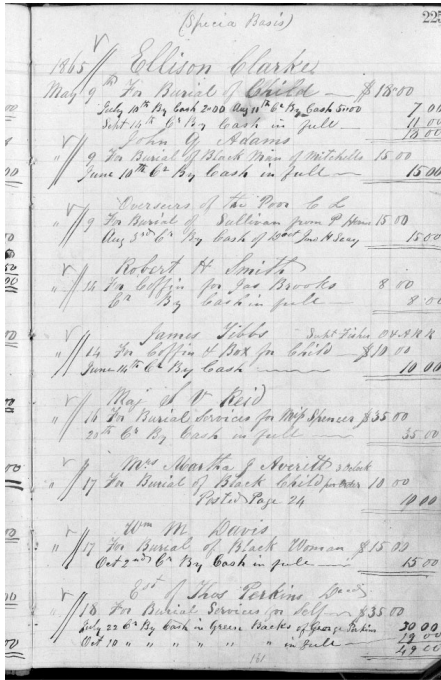 (Specia Basis)
225
1865 Ellison Clarke
May 9th For Burial of Child — $18.00
July 10th By Cash 2.00 Aug 11th Cr By Cash 5.00 7 00
Sept 14th Cr By Cash in full — 11 00
18 00
John Q Adams
" 9 For Burial of Black Man of Mitchells 15 00
June 10th Cr By Cash in full — 15 00
Overseers of the Poor C L
" 9 For Burial of Sullivan from P House 15 00
Aug 3rd Cr By Cash of Jno H 15 00
Robert H Smith
" 14 For Coffin for Jas Brooks 8 00
Cr By Cash in full — 8 00
James Tibbs Supt Fisher O & A R R
" 14 For Coffin & Box for Child — $10.00
June 14th Cr By Cash — 10 00
Maj S V Reid
" 16 For Burial Services for Miss Spencer $35 00
25th Cr By Cash in full — 35 00
Mrs Martha J Averitt 3 Oclock
" 17 For Burial of Black Child 10 00
Posted Page 24 10 00
Wm M Davis
" 17 For Burial of Black Woman $15.00
Oct 2nd Cr By Cash in full — 15 00
Est of Thos Perkins Decd
" 18 For Burial Services for Self — $35 00
July 22 Cr By Cash in Green Backs of George Perkins 30 00
Oct 10 " " " " " in full — 19 00
49 00